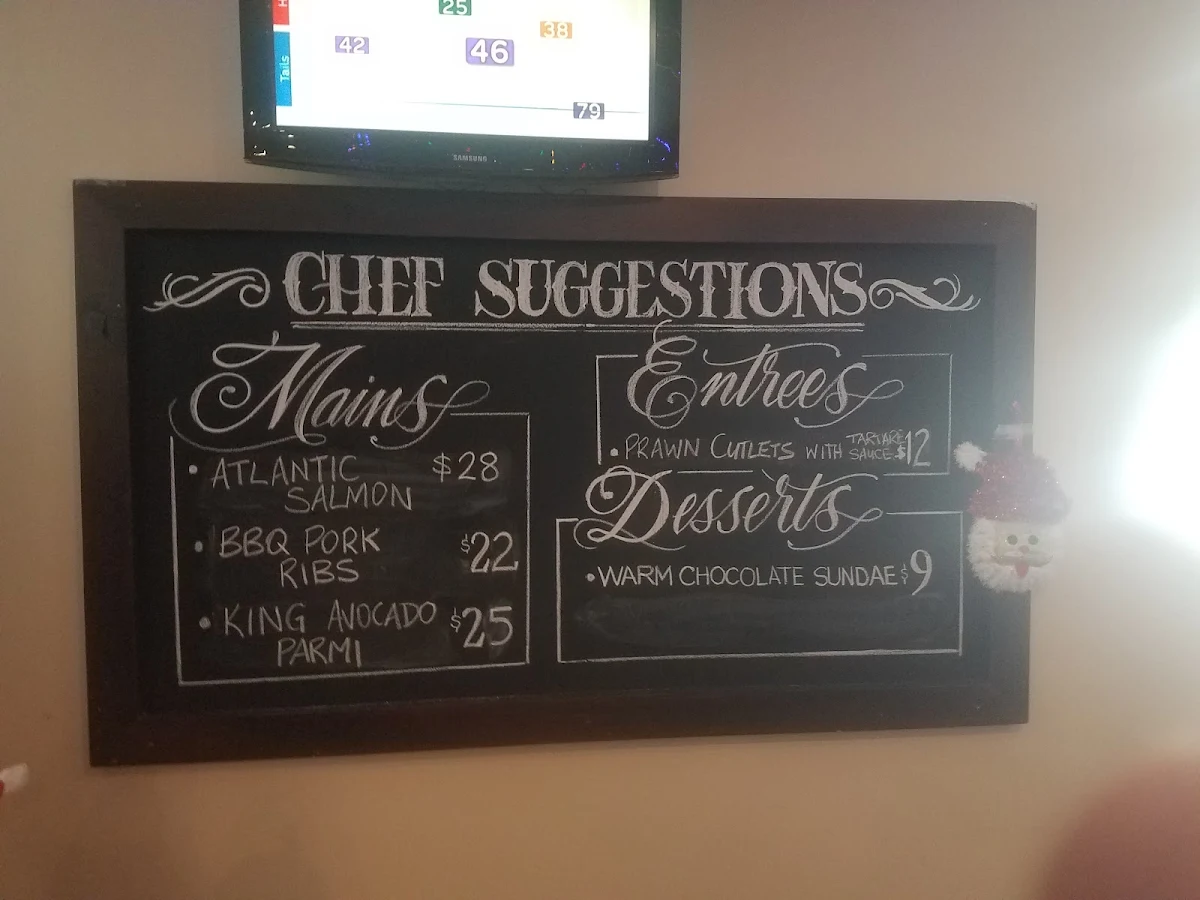 25
38
42
46
Tails
79
SAMSUNG
CHEF SUGGESTIONS
Mains
• ATLANTIC $28
SALMON
• BBQ PORK $22
RIBS
• KING AVOCADO $25
PARMI
Entrees
• PRAWN CUTLETS WITH TARTARE SAUCE $12
Desserts
• WARM CHOCOLATE SUNDAE $9